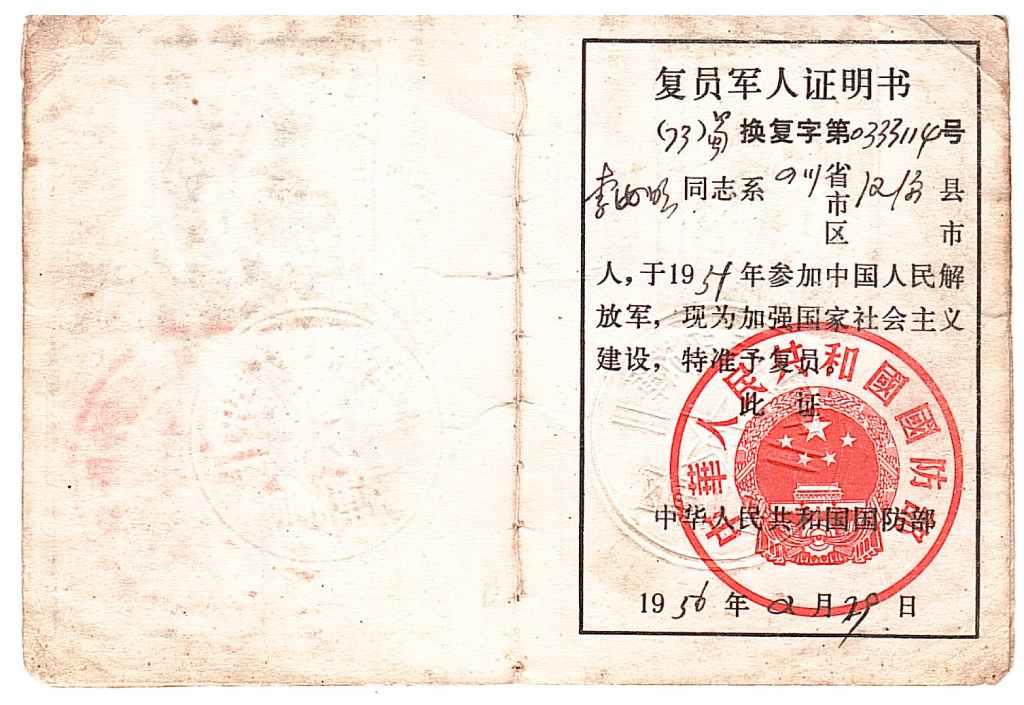 复员军人证明书
(73)蜀换复字第0333114号
李 同志系四川省市区 县市
人，于1954年参加中国人民解
放军，现为加强国家社会主义
建设，特准予复员。
此证
中华人民共和国国防部
1956年2月29日
中華人民共和國國防部